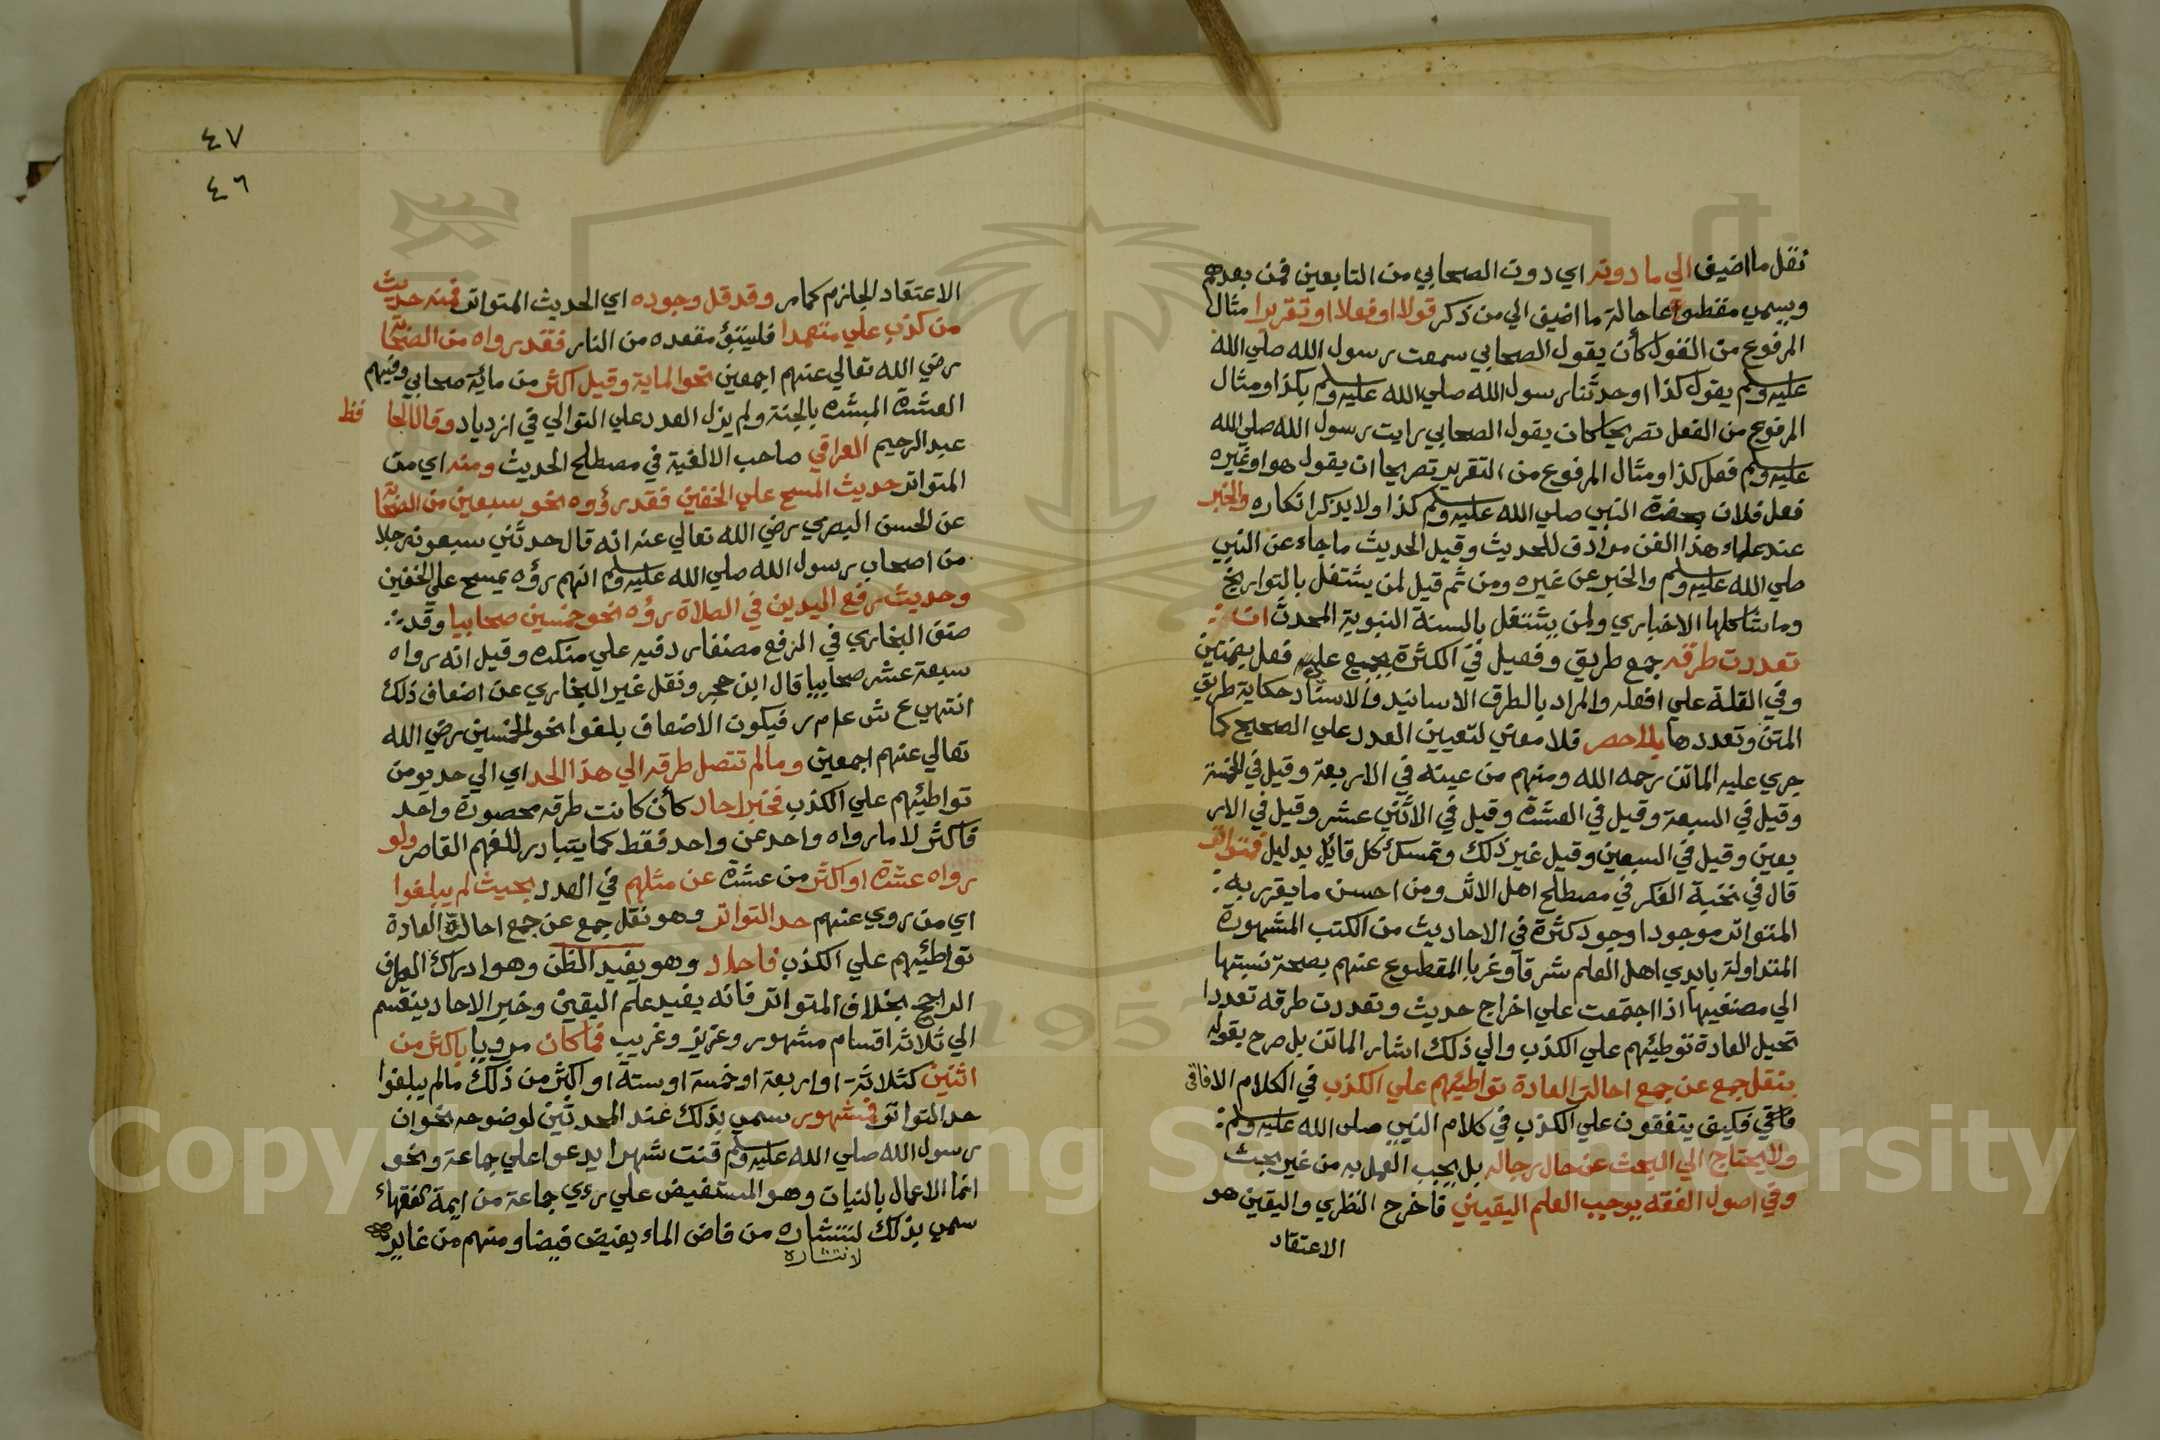 نقل ما اضيف الي ما دونه اي دون الصحابي من التابعين فمن بعدهم
ويسمي مقطوعا حالة ما اضيف الي من ذكر قولا او فعلا او تقريرا مثال
المرفوع من القول كأن يقول الصحابي سمعت رسول الله صلي الله
عليه وسلم يقول كذا او حدثنا رسول الله صلي الله عليه وسلم بكذا ومثال
المرفوع من الفعل تصريحا كان يقول الصحابي رايت رسول الله صلي الله
عليه وسلم فعل كذا ومثال المرفوع من التقرير تصريحا ان يقول هو او غيره
فعل فلان بحضرة النبي صلي الله عليه وسلم كذا ولا يذكر انكاره والخبر
عند علماء هذا الفن مرادف للحديث وقيل الحديث ما جاء عن النبي
صلي الله عليه وسلم والخبر عن غيره ومن ثم قيل لمن يشتغل بالتواريخ
وما شاكلها الاخباري ولمن يشتغل بالسنة النبوية المحدث ان
تعددت طرقه جمع طريق وفعيل في الكثرة يجمع علي فعل بضمتين
وفي القلة علي افعلة والمراد بالطرق الاسانيد والاسناد حكاية طريق
المتن وتعددها بلا حصر فلا معني لتعيين العدد علي الصحيح كما
جري عليه الماتن رحمه الله ومنهم من عينه في الاربعة وقيل في الخمسة
وقيل في السبعة وقيل في العشرة وقيل في الاثني عشر وقيل في الار
بعين وقيل في السبعين وقيل غير ذلك وتمسك كل قايل بدليل فمتواتر
قال في نخبة الفكر في مصطلح اهل الاثر ومن احسن ما يقرر به
المتواتر موجودا وجود كثرة في الاحاديث من الكتب المشهورة
المتداولة بايدي اهل العلم شرقا وغربا المقطوع عنهم بصحة نسبتها
الي مصنفيها اذا اجتمعت علي اخراج حديث وتعددت طرقه تعددا
تحيل العادة توطئهم علي الكذب والي ذلك اشار الماتن بل صرح بقوله
بنقل جمع عن جمع احالت العادة تواطئهم علي الكذب في الكلام الافاقي
فكيف يتفقون علي الكذب في كلام النبي صلى الله عليه وسلم
ولا يحتاج الي البحث عن حال رجاله بل يجب العمل به من غير بحث
وفي اصول الفقه يوجب العلم اليقيني فاخرج النظري واليقين هو
الاعتقاد
٤٧
٤٦
الاعتقاد الجازم كما مر وقد قل وجوده اي الحديث المتواتر فمنه حديث
من كذب علي متعمدا فليتبؤ مقعده من النار فقد رواه من الصحابة
رضي الله تعالي عنهم اجمعين نحو الماية وقيل اكثر من مائة صحابي وفيهم
العشرة المبشرة بالجنة ولم يزل العدد علي التوالي في ازدياد وقال الحا فظ
عبد الرحيم العراقي صاحب الالفية في مصطلح الحديث ومنه اي من
المتواتر حديث المسح علي الخفين فقد رووه نحو سبعين من الصحابة
عن الحسن البصري رضي الله تعالي عنه انه قال حدثني سبعون رجلا
من اصحاب رسول الله صلي الله عليه وسلم انهم رؤه يمسح علي الخفين
وحديث رفع اليدين في الصلاة رؤه نحو خمسين صحابيا وقد
صنف البخاري في الرفع مصنفا رد فيه علي منكره وقيل انه رواه
سبعة عشر صحابيا قال ابن حجر ونقل غير البخاري عن اضعاف ذلك
انتهي ع ش علي م ر فيكون الاضعاف بلغوا نحو الخمسين رضي الله
تعالي عنهم اجمعين وما لم تتصل طرقه الي هذا الحد اي الي حد يؤمن
تواطئهم علي الكذب فخبر احاد كأن كانت طرقه محصورة واحد
فاكثر لا ما رواه واحد عن واحد فقط كما يتبادر للفهم القاصر ولو
رواه عشرة او اكثر من عشرة عن مثلهم في العدد بحيث لم يبلغوا
اي من روي عنهم حد التواتر وهو نقل جمع عن جمع احالت العادة
تواطئهم علي الكذب فاحاد وهو يفيد الظن وهو ادراك الطرف
الراجح بخلاف المتواتر فانه يفيد علم اليقين وخبر الاحاد ينقسم
الي ثلاثة اقسام مشهور وعزيز وغريب فما كان مرويا باكثر من
اثنين كثلاثة او اربعة او خمسة او ستة او اكثر من ذلك ما لم يبلغوا
حد التواتر فمشهور سمي بذلك عند المحدثين لوضوحه نحو ان
رسول الله صلي الله عليه وسلم قنت شهرا يدعوا علي جماعة ونحو
انما الاعمال بالنيات وهو المستفيض علي رءي جماعة من ايمة الفقهاء
سمي بذلك لنتشاره من فاض الماء يفيض فيضا ومنهم من غاير
لانتشاره